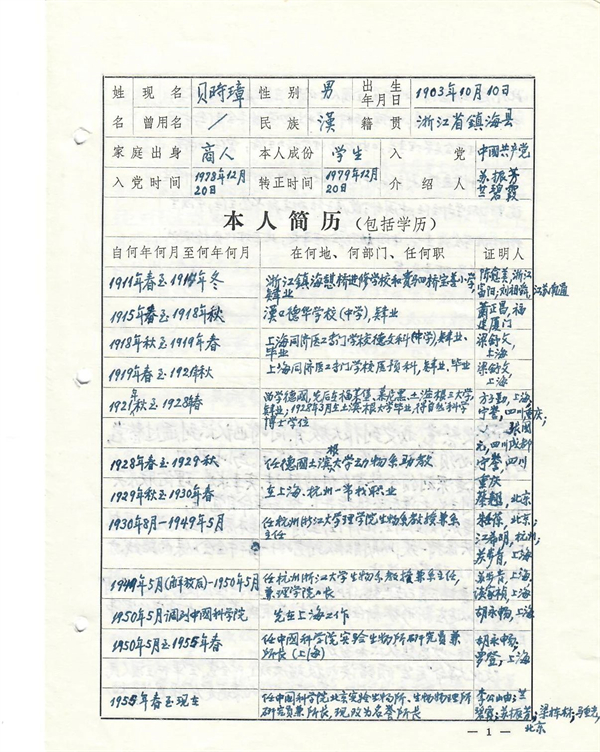 姓 现名 贝時璋 性别 男 出生年月日 1903年10月10日
名 曾用名 / 民族 漢 籍贯 浙江省鎮海县
家庭出身 商人 本人成份 学生 入党 中國共产党
入党时间 1978年12月20日 转正时间 1979年12月20日 介绍人 苏振芳 兰碧霞
本人简历(包括学历)
自何年何月至何年何月 在何地、何部门、任何职 证明人
1911年春至1914年冬 浙江鎮海憩桥进修学校和宝善小学,肄业
1915年春至1918年秋 漢口德华学校(中学),肄业 萧正昌,福建厦门
1918年秋至1919年春 上海同济医工专门学校德文科(中学)肄业、毕业 梁舒文,上海
1919年春至1921年秋 上海同济医工专门学校医预科,肄业、毕业 梁舒文,上海
1921年秋至1928年春 西学德國,先后在福莱堡、慕尼黑、土滨根三大学,肄业;1928年3月在土滨根大学毕业,得自然科学博士学位
1928年春至1929秋 任德國土滨根大学动物系助教 宁誉,四川重庆
1929年秋至1930年春 在上海、杭州一带找职业 蔡翘,北京
1930年8月—1949年5月 任杭州浙江大学理学院生物系教授兼系主任 北京; 江希明,杭州; 苏步青,上海
1949年5月(解放后)—1950年5月 任杭州浙江大学生物系教授兼系主任,兼理学院院长 苏步青,上海, 谈家桢,上海
1950年5月调到中國科学院 先在上海工作 胡永畅,上海
1950年5月至1955年春 任中國科学院实验生物所研究员兼所长(上海) 胡永畅, 罗登,上海
1955年春至现在 任中国科学院北京实验生物所、生物物理所研究员兼所长,现改为名誉所长 李公岫; 兰碧霞; 苏振芳; 梁栋材, 北京
— 1 —